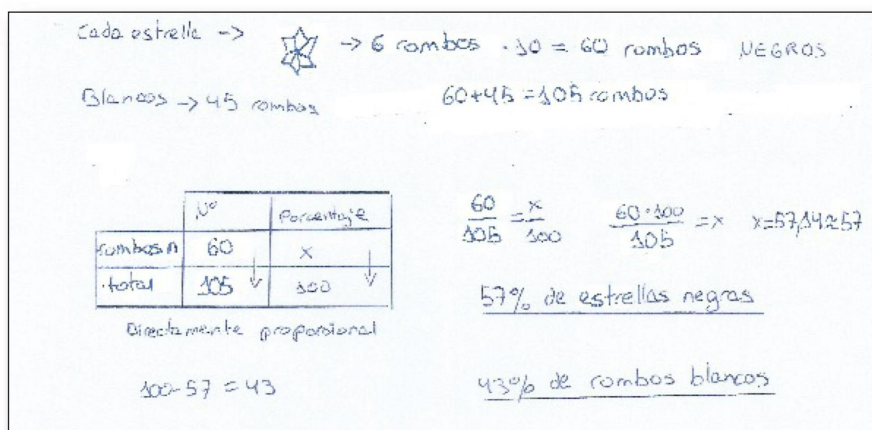 Cada estrella -> -> 6 rombos · 10 = 60 rombos NEGROS
Blancos -> 45 rombos 60+45 = 105 rombos
Nº Porcentaje
rombos n 60 x
total 105 100
Directamente proporsional
60/105 = x/100 60·100/105 = x x=57,14≈57
57% de estrellas negras
100-57 = 43
43% de rombos blancos